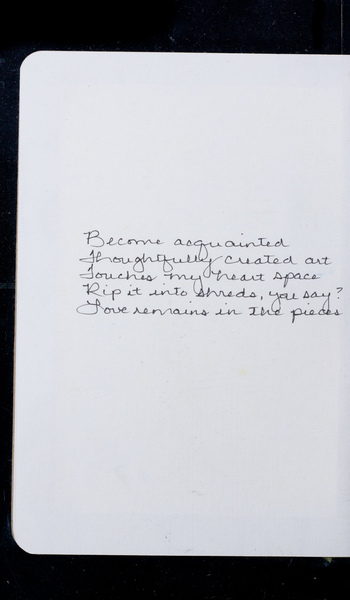 Become acquainted
Thoughtfully created art
Touches my heart space
Rip it into shreds, you say?
Love remains in the pieces